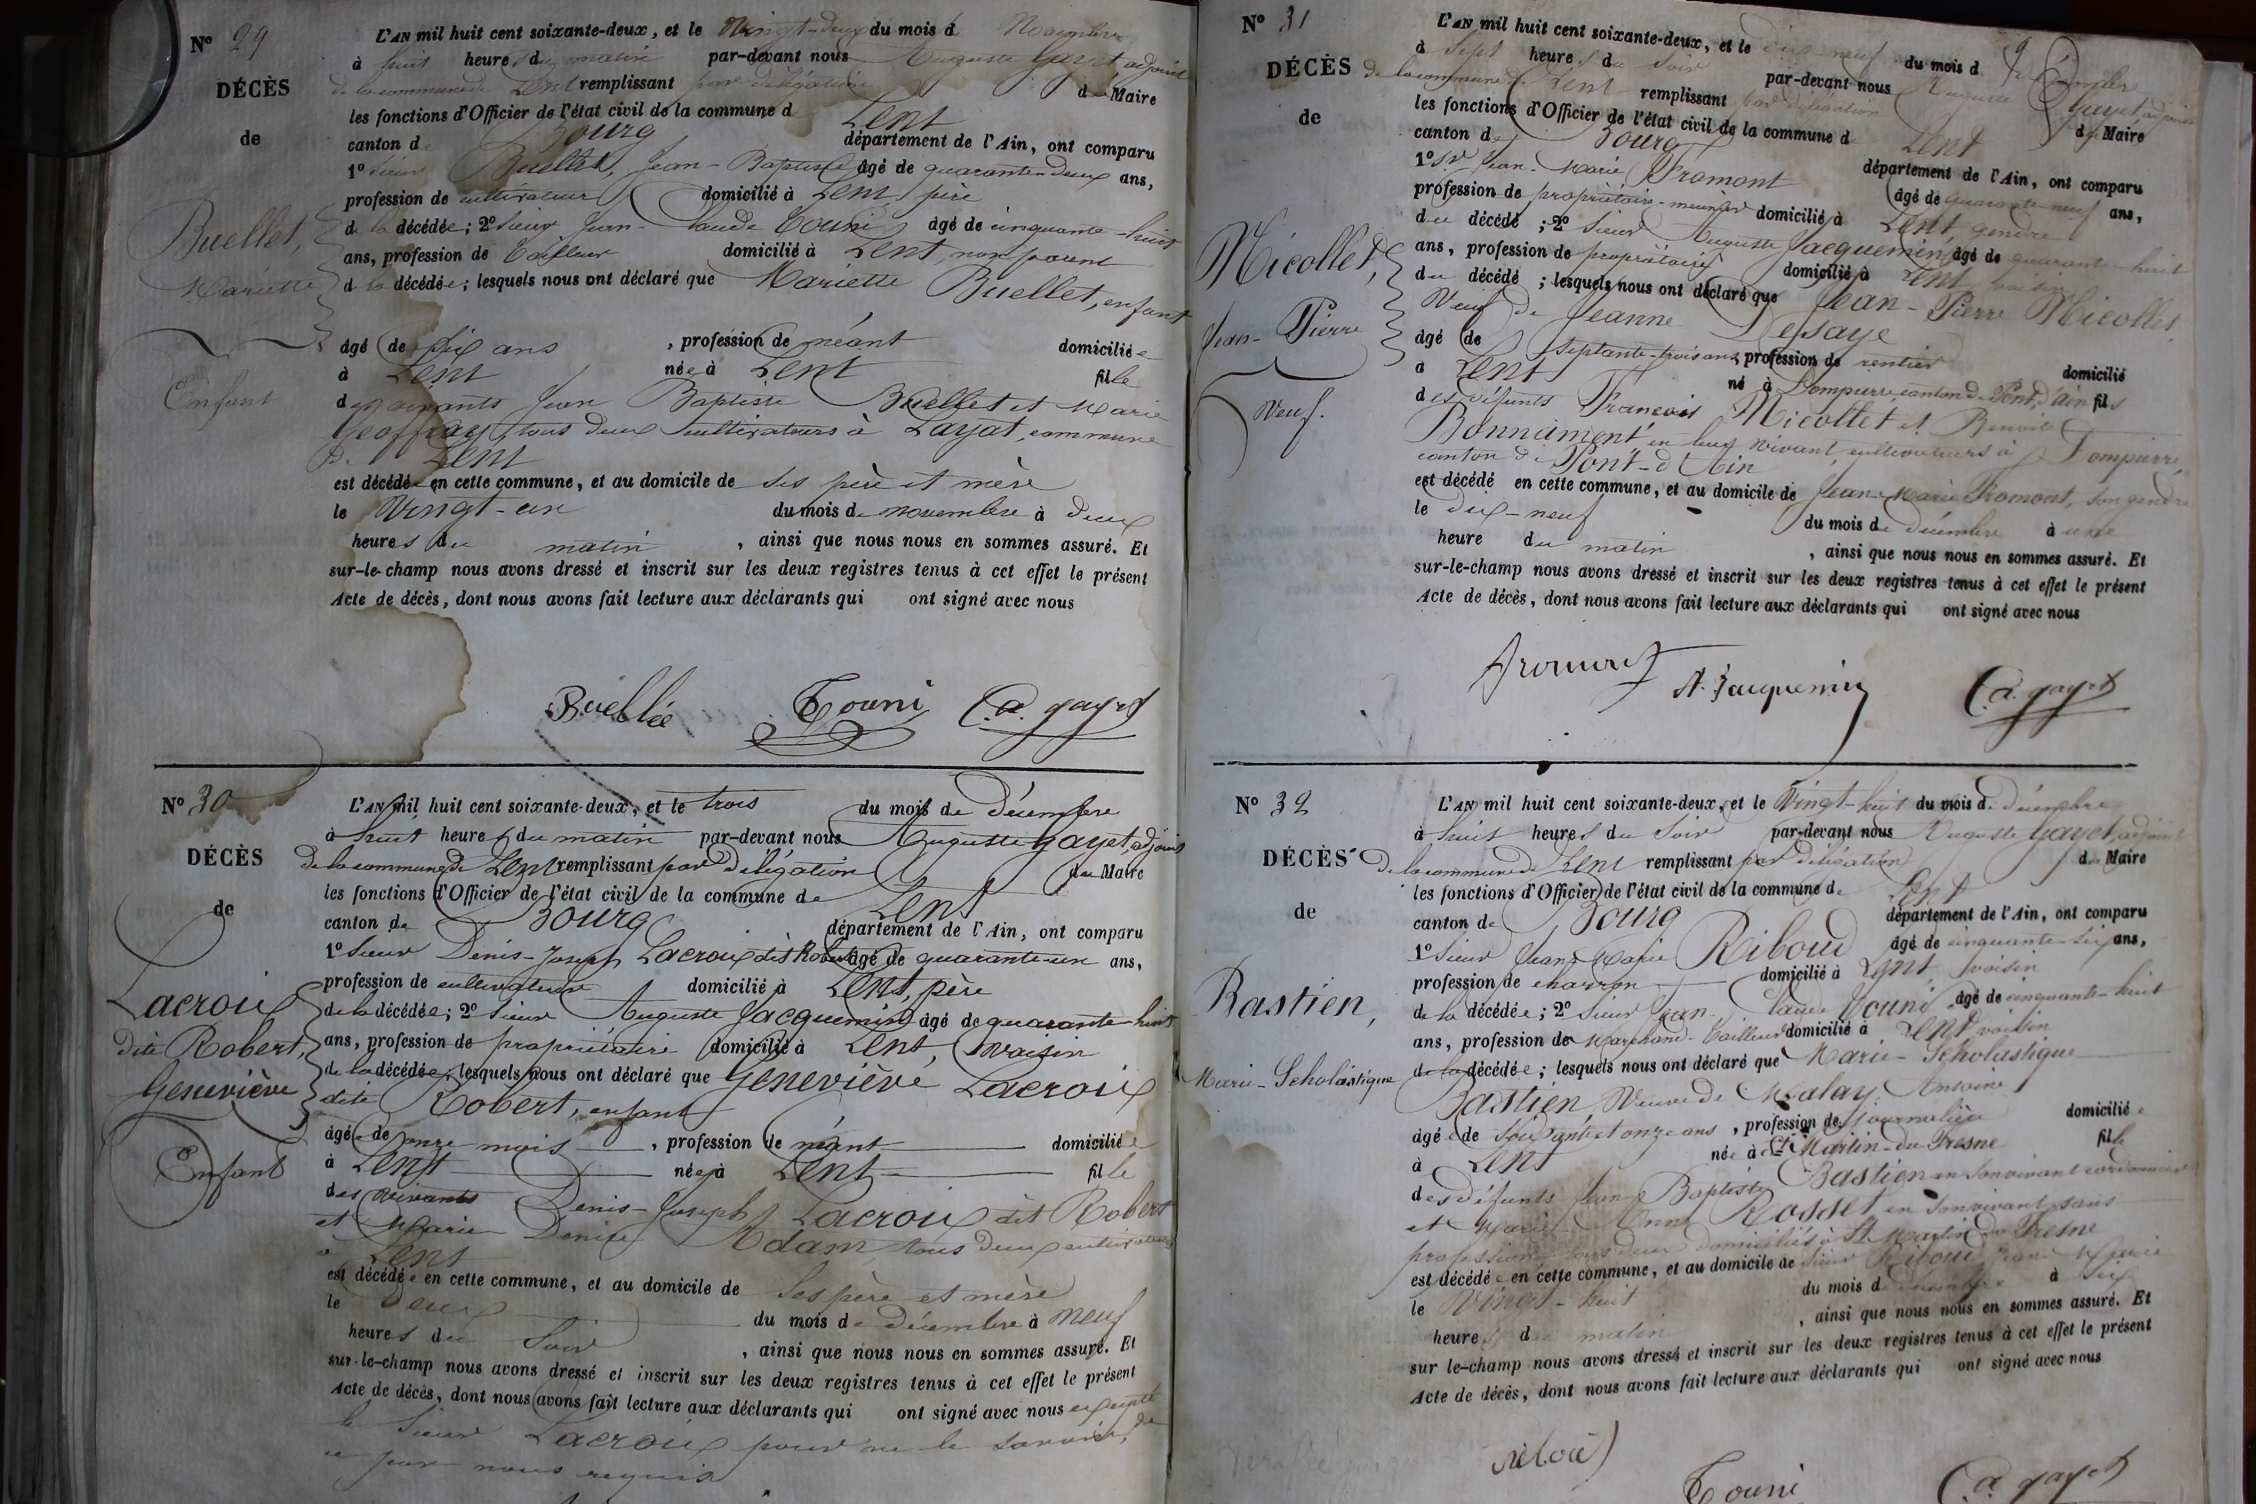 Nº 29
DÉCÈS
de
Buellet,
Mariette
Enfant
L'AN mil huit cent soixante-deux, et le Vingt-deux du mois d Novembre
à huit heures du matin par-devant nous Auguste Gayet adjoint
de la commune de Lent remplissant par délégation du Maire
les fonctions d'Officier de l'état civil de la commune d Lent
canton de Bourg département de l'Ain, ont comparu
1º Sieur Buellet, Jean-Baptiste âgé de quarante-deux ans,
profession de cultivateur domicilié à Lent, père
de la décédée; 2º Sieur Jean-Claude Touni âgé de cinquante-huit
ans, profession de tailleur domicilié à Lent, non parent
de la décédée; lesquels nous ont déclaré que Mariette Buellet, enfant
âgé de six ans , profession de néant domiciliée
à Lent née à Lent fille
des vivants Jean Baptiste Buellet et Marie
Geoffray, tous deux cultivateurs à Layat, commune
de Lent
est décédée en cette commune, et au domicile de ses père et mère
le Vingt-un du mois de novembre à deux
heures du matin , ainsi que nous nous en sommes assuré. Et
sur-le-champ nous avons dressé et inscrit sur les deux registres tenus à cet effet le présent
Acte de décès, dont nous avons fait lecture aux déclarants qui ont signé avec nous
Buellée Touni C. a. gayet
Nº 30
DÉCÈS
de
Lacroix
dite Robert,
Geneviève
Enfant
L'AN mil huit cent soixante-deux, et le trois du mois de Décembre
à huit heures du matin par-devant nous Auguste Gayet, adjoint
de la commune de Lent remplissant par délégation du Maire
les fonctions d'Officier de l'état civil de la commune de Lent
canton de Bourg département de l'Ain, ont comparu
1º Sieur Denis-Joseph Lacroix dit Robert âgé de quarante-un ans,
profession de cultivateur domicilié à Lent, père
de la décédée; 2º Sieur Auguste Jacquemin âgé de quarante-huit
ans, profession de propriétaire domicilié à Lent, voisin
de la décédée; lesquels nous ont déclaré que Geneviève Lacroix
dite Robert, enfant
âgée de onze mois , profession de néant domiciliée
à Lent née à Lent fille
des vivants Denis-Joseph Lacroix dit Robert
et Marie Denise Adam, tous deux cultivateurs
à Lent
est décédée en cette commune, et au domicile de ses père et mère
le deux du mois de Décembre à neuf
heures du soir , ainsi que nous nous en sommes assuré. Et
sur-le-champ nous avons dressé et inscrit sur les deux registres tenus à cet effet le présent
Acte de décès, dont nous avons fait lecture aux déclarants qui ont signé avec nous excepté
le Sieur Lacroix pour ne le savoir, de
ce par nous requis
Nº 31
DÉCÈS
de
Micollet,
Jean-Pierre
Veuf.
L'AN mil huit cent soixante-deux, et le dix-neuf du mois d Décembre
à sept heures du soir par-devant nous Auguste Gayet, adjoint
de la commune de Lent remplissant par délégation du Maire
les fonctions d'Officier de l'état civil de la commune d Lent
canton de Bourg département de l'Ain, ont comparu
1º Sr Jean-Marie Fromont âgé de quarante-neuf ans,
profession de propriétaire-meunier domicilié à Lent, gendre
du décédé; 2º Sieur Auguste Jacquemin âgé de quarant-huit
ans, profession de propriétaire domicilié à Lent voisin
du décédé; lesquels nous ont déclaré que Jean-Pierre Micollet,
Veuf de Jeanne Desaye
âgé de septante-trois ans, profession de rentier domicilié
à Lent né à Dompierre, canton de Pont-d'Ain fils
des défunts François Micollet et Benoite
Bonnament en leur vivant cultivateurs à Dompierre,
canton de Pont-d'Ain
est décédé en cette commune, et au domicile de Jean-Marie Fromont, son gendre
le dix-neuf du mois de décembre à une
heure du matin , ainsi que nous nous en sommes assuré. Et
sur-le-champ nous avons dressé et inscrit sur les deux registres tenus à cet effet le présent
Acte de décès, dont nous avons fait lecture aux déclarants qui ont signé avec nous
fromont A. Jacquemin C. a. gayet
Nº 32
DÉCÈS
de
Bastien,
Marie-Scholastique
L'AN mil huit cent soixante-deux, et le Vingt-huit du mois de décembre
à huit heures du soir par-devant nous Auguste Gayet, adjoint
de la commune de Lent remplissant par délégation du Maire
les fonctions d'Officier de l'état civil de la commune de Lent
canton de Bourg département de l'Ain, ont comparu
1º Sieur Jean-Marie Riboud âgé de cinquante-six ans,
profession de charron domicilié à Lent voisin
de la décédée; 2º Sieur Jean-Claude Touni âgé de cinquante-huit
ans, profession de Marchand-Tailleur domicilié à Lent voisin
de la décédée; lesquels nous ont déclaré que Marie-Scholastique
Bastien, Veuve de Malay Antoine
âgée de soixante et onze ans, profession de journalière domiciliée
à Lent née à St Martin-du-Fresne fille
des défunts Jean Baptiste Bastien en son vivant cordonnier
et Marie-Anne Rosset en son vivant sans
profession, tous deux domiciliés à St Martin du Fresne
est décédée en cette commune, et au domicile de Sieur Riboud Jean Marie
le Vingt-huit du mois de décembre à six
heures du matin , ainsi que nous nous en sommes assuré. Et
sur le-champ nous avons dressé et inscrit sur les deux registres tenus à cet effet le présent
Acte de décès, dont nous avons fait lecture aux déclarants qui ont signé avec nous
Touni C. a. gayet